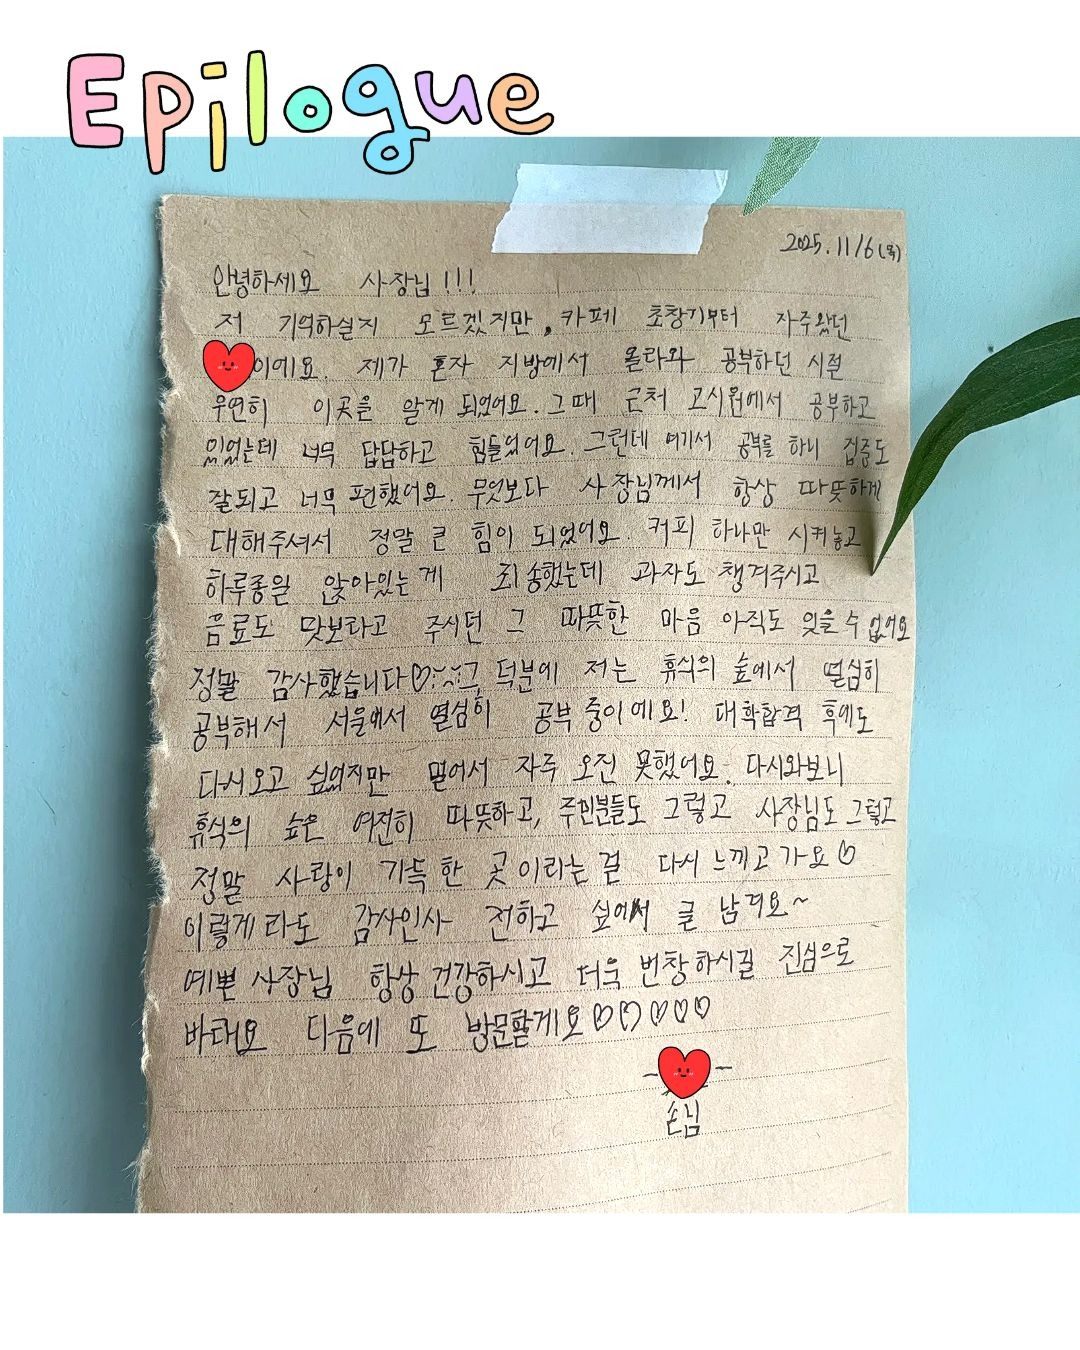 Epilogue
2025. 11/6(목)
안녕하세요 사장님!!!
저 기억하실지 모르겠지만, 카페 초창기부터 자주왔던
이에요. 제가 혼자 지방에서 올라와 공부하던 시절
우연히 이곳을 알게 되었어요. 그때 근처 고시원에서 공부하고
있었는데 너무 답답하고 힘들었어요. 그런데 여기서 공부를 하니 집중도
잘되고 너무 편했어요. 무엇보다 사장님께서 항상 따뜻하게
대해주셔서 정말 큰 힘이 되었어요. 커피 하나만 시켜놓고
하루종일 앉아있는게 죄송했는데 과자도 챙겨주시고
음료도 맛보라고 주시던 그 따뜻한 마음 아직도 잊을수 없어요
정말 감사했습니다♡ 그 덕분에 저는 휴식의 숲에서 열심히
공부해서 서울에서 열심히 공부 중이에요! 대학합격 후에도
다시오고 싶었지만 멀어서 자주 오진 못했어요. 다시와보니
휴식의 숲은 여전히 따뜻하고, 주민분들도 그렇고 사장님도 그렇고
정말 사랑이 가득한 곳이라는걸 다시 느끼고가요♡
이렇게라도 감사인사 전하고 싶어서 글 남겨요~
예쁜 사장님 항상 건강하시고 더욱 번창하시길 진심으로
바래요 다음에 또 방문할게요♡♡♡♡♡
손님